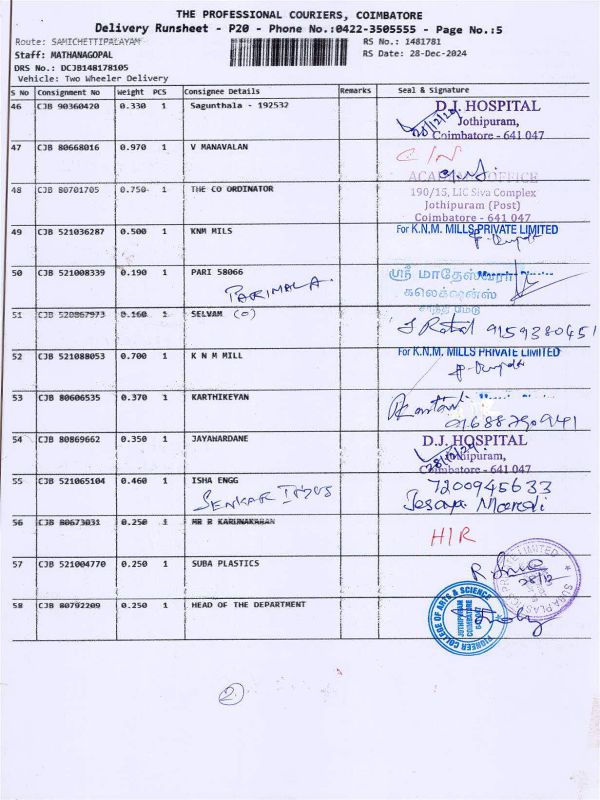 THE PROFESSIONAL COURIERS, COIMBATORE
Delivery Runsheet - P20 - Phone No.:0422-3505555 - Page No.:5
Route: SAMICHETTIPALAYAM RS No.: 1481781
Staff: MATHANAGOPAL RS Date: 28-Dec-2024
DRS No.: DCJB148178105
Vehicle: Two Wheeler Delivery
S No Consignment No Weight PCS Consignee Details Remarks Seal & Signature
46 CJB 90360420 0.330 1 Sagunthala - 192532 D.J. HOSPITAL
Jothipuram,
Coimbatore - 641 047
47 CJB 80668016 0.970 1 V MANAVALAN C/N
48 CJB 80701705 0.750 1 THE CO ORDINATOR OFFICE
190/15, LIC Siva Complex
Jothipuram (Post)
Coimbatore - 641 047
49 CJB 521036287 0.500 1 KNM MILS For K.N.M. MILLS PRIVATE LIMITED
50 CJB 521008339 0.190 1 PARI 58066 ஸ்ரீ மாதேஸ்வரா
PARIMALA கலெக்ஷன்ஸ்
51 CJB 520867973 0.160 1 SELVAM (0) 9159380451
52 CJB 521088053 0.700 1 K N M MILL For K.N.M. MILLS PRIVATE LIMITED
53 CJB 80606535 0.370 1 KARTHIKEYAN
54 CJB 80869662 0.350 1 JAYAWARDANE D.J. HOSPITAL
Jothipuram,
Coimbatore - 641 047
55 CJB 521065104 0.460 1 ISHA ENGG 7200945633
56 CJB 80673031 0.250 1 MR R KARUNAKARAN H/R
57 CJB 521004770 0.250 1 SUBA PLASTICS
28/12
58 CJB 80792209 0.250 1 HEAD OF THE DEPARTMENT PIONEER COLLEGE OF ARTS & SCIENCE
JOTHIPURAM
COIMBATORE
2